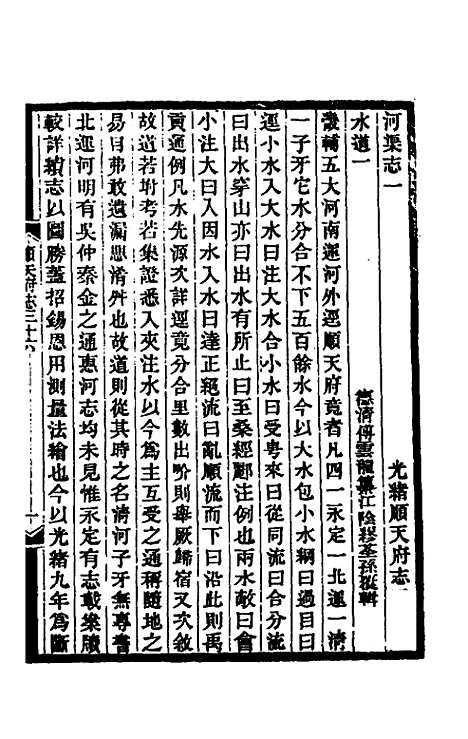 光緒順天府志
河渠志一
水道一
德清傅雲龍纂江陰繆荃孫覆輯
畿輔五大河南運河外逕順天府竟者凡四一永定一北運一清
一子牙它水分合不下五百餘水今以大水包小水綱曰過目曰
逕小水入大水曰注大水合小水曰受粤來曰從同流曰合分流
曰出水穿山亦曰出水有所止曰至桑經酈注例也兩水敵曰會
小注大曰入因水入水曰達正絕流曰亂順流而下曰沿此則禹
貢通例凡水先源次詳逕竟分合里數出唫則舉厥歸宿又次敘
故道若坿考若集證悉入夾注水以今為主互受之通稱隨地之
易目弗敢遺漏懲淆舛也故道則從其時之名清河子牙無專書
北運河明有吳仲秦金之通惠河志均未見惟永定有志載樂牘
較詳續志以圖勝蓋招錫恩用測量法繪也今以光緒九年為斷
順天府志三十六
一